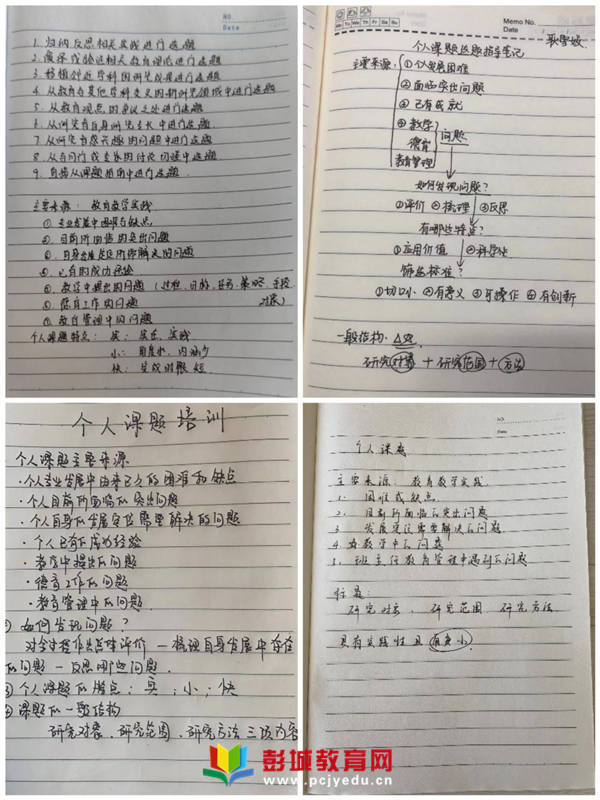 NO.
Date
1. 归纳反思相关实践进行选题
2. 选择或验证相关教育理论进行选题
3. 移植邻近学科的研究成果进行选题
4. 从教育与其他学科交叉的新研究领域中进行选题
5. 从教育观点的争议之处进行选题
6. 从研究者自身研究专长中进行选题
7. 从研究者感兴趣的问题中进行选题
8. 从有同行或专家的讨论问题中进行选题
9. 直接从课题指南中进行选题
主要来源：教育教学实践
① 专业发展中困难与缺点
② 目前所面临的突出问题
③ 自身发展定位所需解决的问题
④ 已有的成功经验
⑤ 教学中提出的问题（过程、目标、任务、策略、手段
对象）
⑥ 德育工作的问题
⑦ 教育管理中的问题
个人课题特点：实：实在、实践
小：角度小、内涵少
快：完成时限短
Mo Tu We Th Fr Sa Su
Memo No.
Date
个人课题选题指导笔记
主要来源
① 个人发展困难
② 面临突出问题
③ 已有成就
④ 教学
德育
教育管理
问题
如何发现问题？
①评价 ②梳理 ③反思
有哪些特征？
①应用价值 ②科学性
筛选标准？
①切口小 ②有意义 ③可操作 ④有创新
一般结构：
研究对象 + 研究范围 + 方法
个人课题培训
个人课题主要来源
·个人专业发展中由来已久的困难和缺点
·个人目前所面临的突出问题
·个人自身的发展定位需要解决的问题
·个人已有的成功经验
·教学中提出的问题
·德育工作的问题
·教育管理中的问题.
② 如何发现问题？
对全过程作出总体评价 — 梳理自身发展中存在
的问题 — 反思哪些问题.
③ 个人课题的特点：实；小；快
④ 课题的一般结构
研究对象、研究范围、研究方法 三项内容
NO.
Date
个人课题
主要来源：教育教学实践
1. 困难或缺点
2. 目前所面临的突出问题
3. 发展定位需要解决的问题
4. 教学中的问题
5. 班主任教育管理中遇到的问题
标题：
研究对象、研究范围 研究方法
具有实践性且
彭城教育网
www.pcjyedu.cn